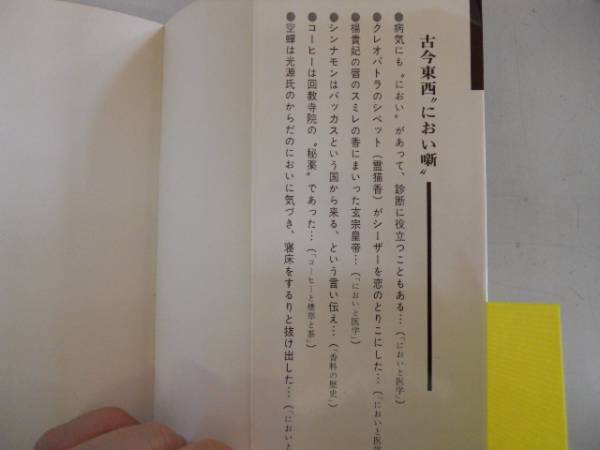 古今東西〝におい噺〟
●病気にも〝におい〟があって、診断に役立つこともある…(「においと医学」)
●クレオパトラのシベット(霊猫香)がシーザーを恋のとりこにした…(「においと医学
●楊貴妃の唇のスミレの香にまいった玄宗皇帝…(「においと医学」)
●シンナモンはバッカスという国から来る、という言い伝え…(「香料の歴史」)
●コーヒーは回教寺院の〝秘薬〟であった…(「コーヒーと煙草と茶」)
●空蟬は光源氏のからだのにおいに気づき、寝床をするりと抜け出した…(「においと